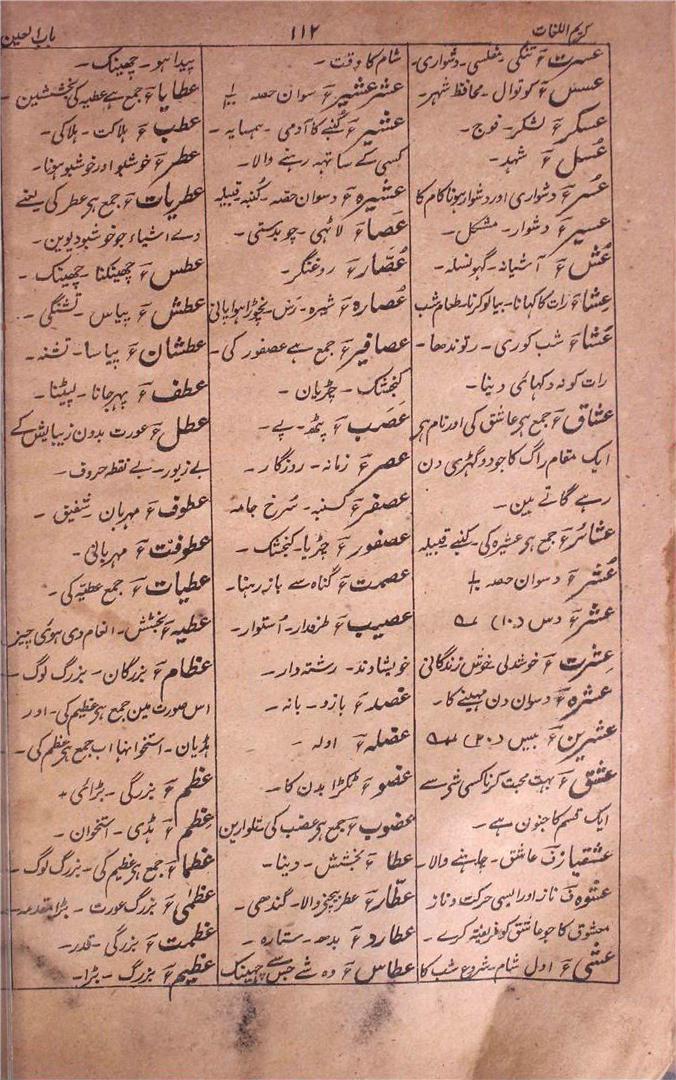 کریم اللغات
۱۱۲
باب العین
عسرت ؏ تنگی۔ مفلسی۔ دشواری۔
عسس ؏ کوتوال۔ محافظ شہر۔
عسکر ؏ لشکر۔ فوج۔
عسل ؏ شہد۔
عسر ؏ دشواری اور دشوار ہونا کام کا
عسیر ؏ دشوار۔ مشکل۔
عش ؏ آشیانہ۔ گہونسلہ۔
عشاء ؏ رات کا کہانا۔ بیالو کرنا۔ طعام شب
عشا ؏ شب کوری۔ رتوندھا۔
رات کو نہ دکہائی دینا۔
عشاق ؏ جمع ہر عاشق کی اور نام ہر
ایک مقام راگ کا جو دو گہڑی دن
رہے گاتے ہین۔
عشائر ؏ جمع ہر عشیرہ کی۔ کنبے قبیلہ
عشر ؏ دسوان حصہ
عشر ؏ دس (۱۰)
عشرت ؏ خوشدلی خوش زندگانی
عشرہ ؏ دسوان دن مہینے کا۔
عشرین ؏ بیس (۲۰)
عشق ؏ بہت محبت کرنا کسی شی سے
ایک قسم کا جنون ہے۔
عشقباز ف عاشق۔ چاہنے والا۔
عشوہ ف ناز اور ایسی حرکت و ناز
معشوق کا جو عاشق کو فریفتہ کرے۔
عشی ؏ اول شام۔ شروع شب کا
شام کا وقت۔
عشر عشیر ؏ سوان حصہ
عشیر ؏ کُنبے کا آدمی۔ ہمسایہ۔
کسی کے ساتہہ رہنے والا۔
عشیرہ ؏ دسوان حصہ۔ کُنبہ قبیلہ
عصا ؏ لاٹہی۔ چوبدستی۔
عصّار ؏ روغنگر۔
عصارہ ؏ شیرہ۔ رس۔ نچوڑا ہوا پانی
عصافیر ؏ جمع ہے عصفور کی۔
کنجشک۔ چڑیان۔
عصب ؏ پٹھ۔ پے۔
عصر ؏ زمانہ۔ روزگار۔
عصفر ؏ کسنبہ۔ سرخ جامہ
عصفور ؏ چڑیا۔ کنجشک۔
عصمت ؏ گناہ سے باز رہنا۔
عصیب ؏ طرفدار۔ استوار۔
خویشاوند۔ رشتہ دار۔
عضد ؏ بازو۔ بانہ۔
عضلہ ؏
عضو ؏ ٹکڑا بدن کا۔
عضوب ؏ جمع ہر عضب کی تلوارین
عطا ؏ بخشش۔ دینا۔
عطّار ؏ عطر بیچنے والا۔ گندھی۔
عطارد ؏ بدھ۔ ستارہ۔
عطاس ؏ وہ شے جس سے چہینک
پیدا ہو۔ چھینک۔
عطایا ؏ جمع ہے عطیہ کی بخششین۔
عطب ؏ ہلاکت۔ ہلاکی۔
عطر ؏ خوشبو اور خوشبو ہونا۔
عطریات ؏ جمع ہر عطر کی یعنے
وے اشیاء جو خوشبو دیوین۔
عطس ؏ چھینکنا۔ چھینک۔
عطش ؏ پیاس۔ تشنگی۔
عطشان ؏ پیاسا۔ تشنہ۔
عطف ؏ پہر جانا۔ لپیٹنا۔
عطل ؏ عورت بدون زیبایش کے
بے زیور۔ بے نقطہ حروف۔
عطوف ؏ مہربان۔ شفیق۔
عطوفت ؏ مہربانی۔
عطیات ؏ جمع عطیّہ کی۔
عطیہ ؏ بخشش۔ انعام دی ہوئی چیز
عظام ؏ بزرگان۔ بزرگ لوگ۔
اس صورت مین جمع ہر عظیم کی۔ اور
ہڈیان۔ استخوانہا اب جمع ہر عظم کی۔
عظم ؏ بزرگی۔ بڑائی۔
عظم ؏ ہڈی۔ استخوان۔
عظما ؏ جمع ہر عظیم کی۔ بزرگ لوگ۔
عظمٰی ؏ بزرگ عورت۔ بڑا
عظمت ؏ بزرگی۔ قدر۔
عظیم ؏ بزرگ۔ بڑا۔